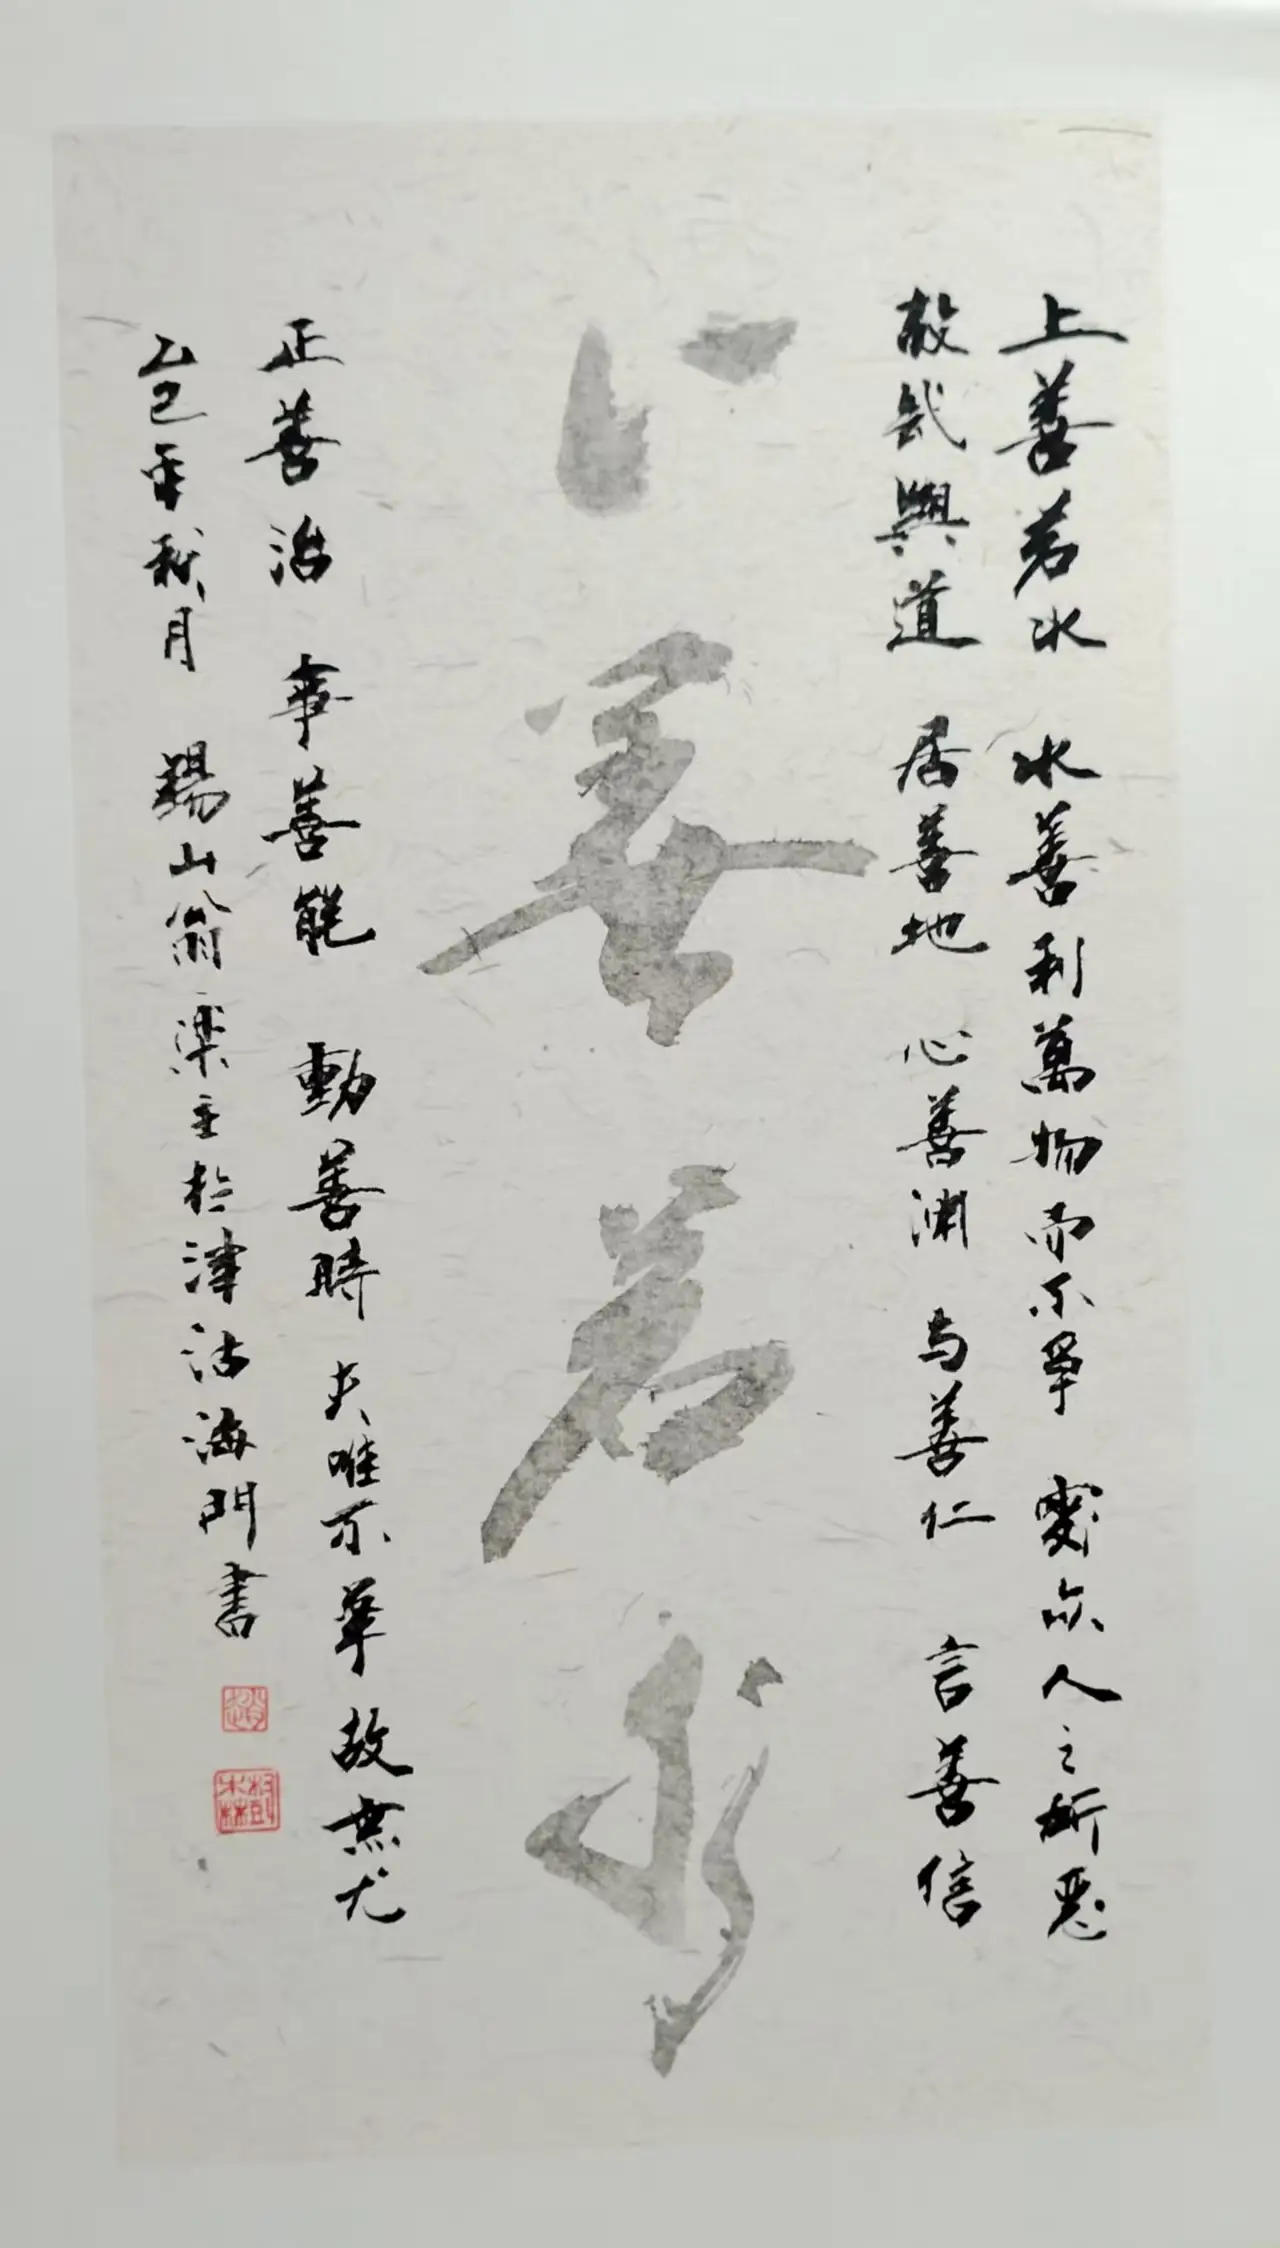 上善若水 水善利萬物而不爭 處亦人之所惡
故幾與道 居善地 心善渊 与善仁 言善信
上善若水
正善治 事善能 動善時 夫唯不爭故无尤
乙巳年秋月 山翁 主於津沽海門書
趙